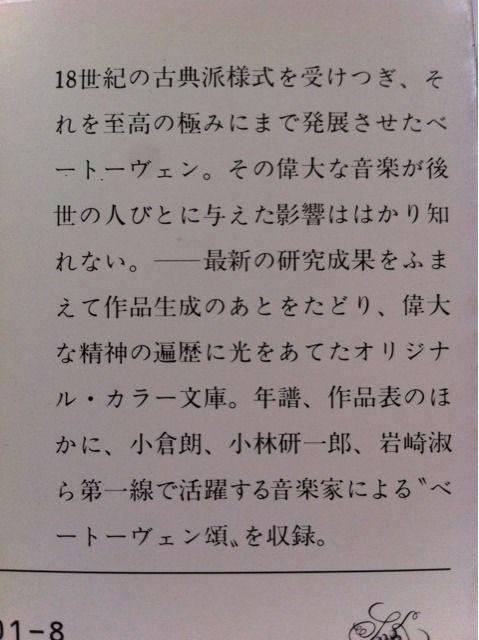 18世紀の古典派様式を受けつぎ、そ
れを至高の極みにまで発展させたベ
ートーヴェン。その偉大な音楽が後
世の人びとに与えた影響ははかり知
れない。——最新の研究成果をふま
えて作品生成のあとをたどり、偉大
な精神の遍歴に光をあてたオリジナ
ル・カラー文庫。年譜、作品表のほ
かに、小倉朗、小林研一郎、岩崎淑
ら第一線で活躍する音楽家による〝ベ
ートーヴェン頌〟を収録。
01-8